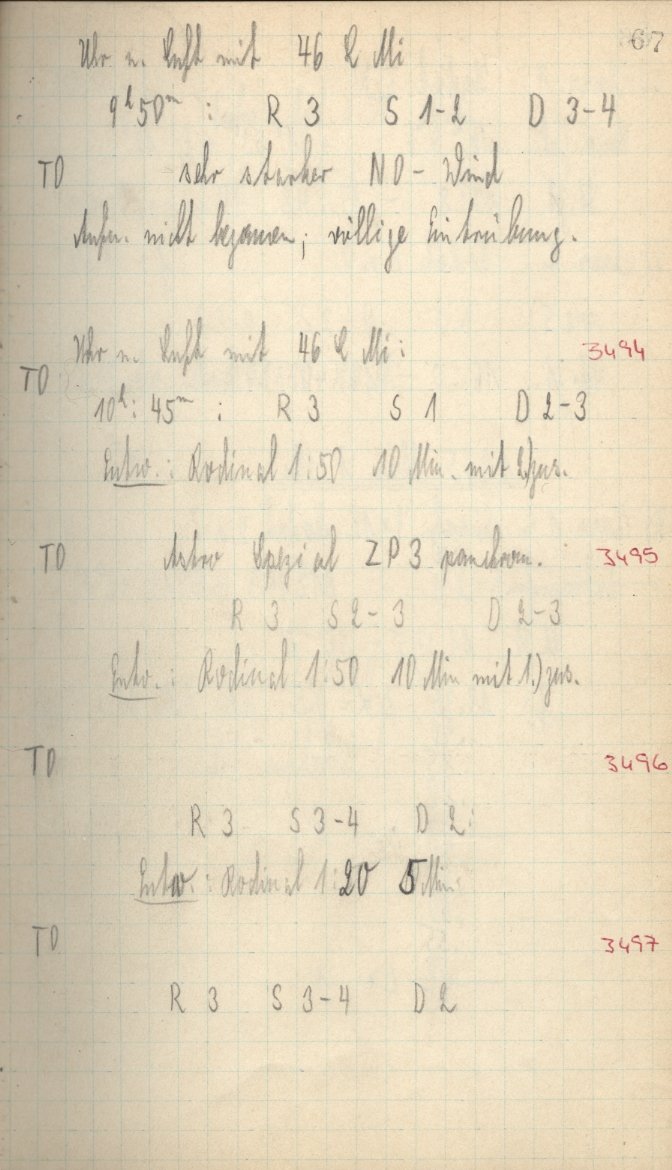 67
Uhr n. Luft mit 46 L Mi
9h 50m : R 3 S 1-2 D 3-4
TO sehr starker NO - Wind
Aufn. nicht begonnen; völlige Eintrübung.
Uhr n. Luft mit 46 L Mi: 3494
TO
10h: 45m : R 3 S 1 D 2-3
Entw.: Rodinal 1:50 10 Min. mit 2.)zus.
TO Astro Spezial ZP3 panchrom. 3495
R 3 S 2-3 D 2-3
Entw.: Rodinal 1:50 10 Min mit 1.)zus.
TO 3496
R 3 S 3-4 D 2
Entw.: Rodinal 1:20 5 Min.
TO 3497
R 3 S 3-4 D 2